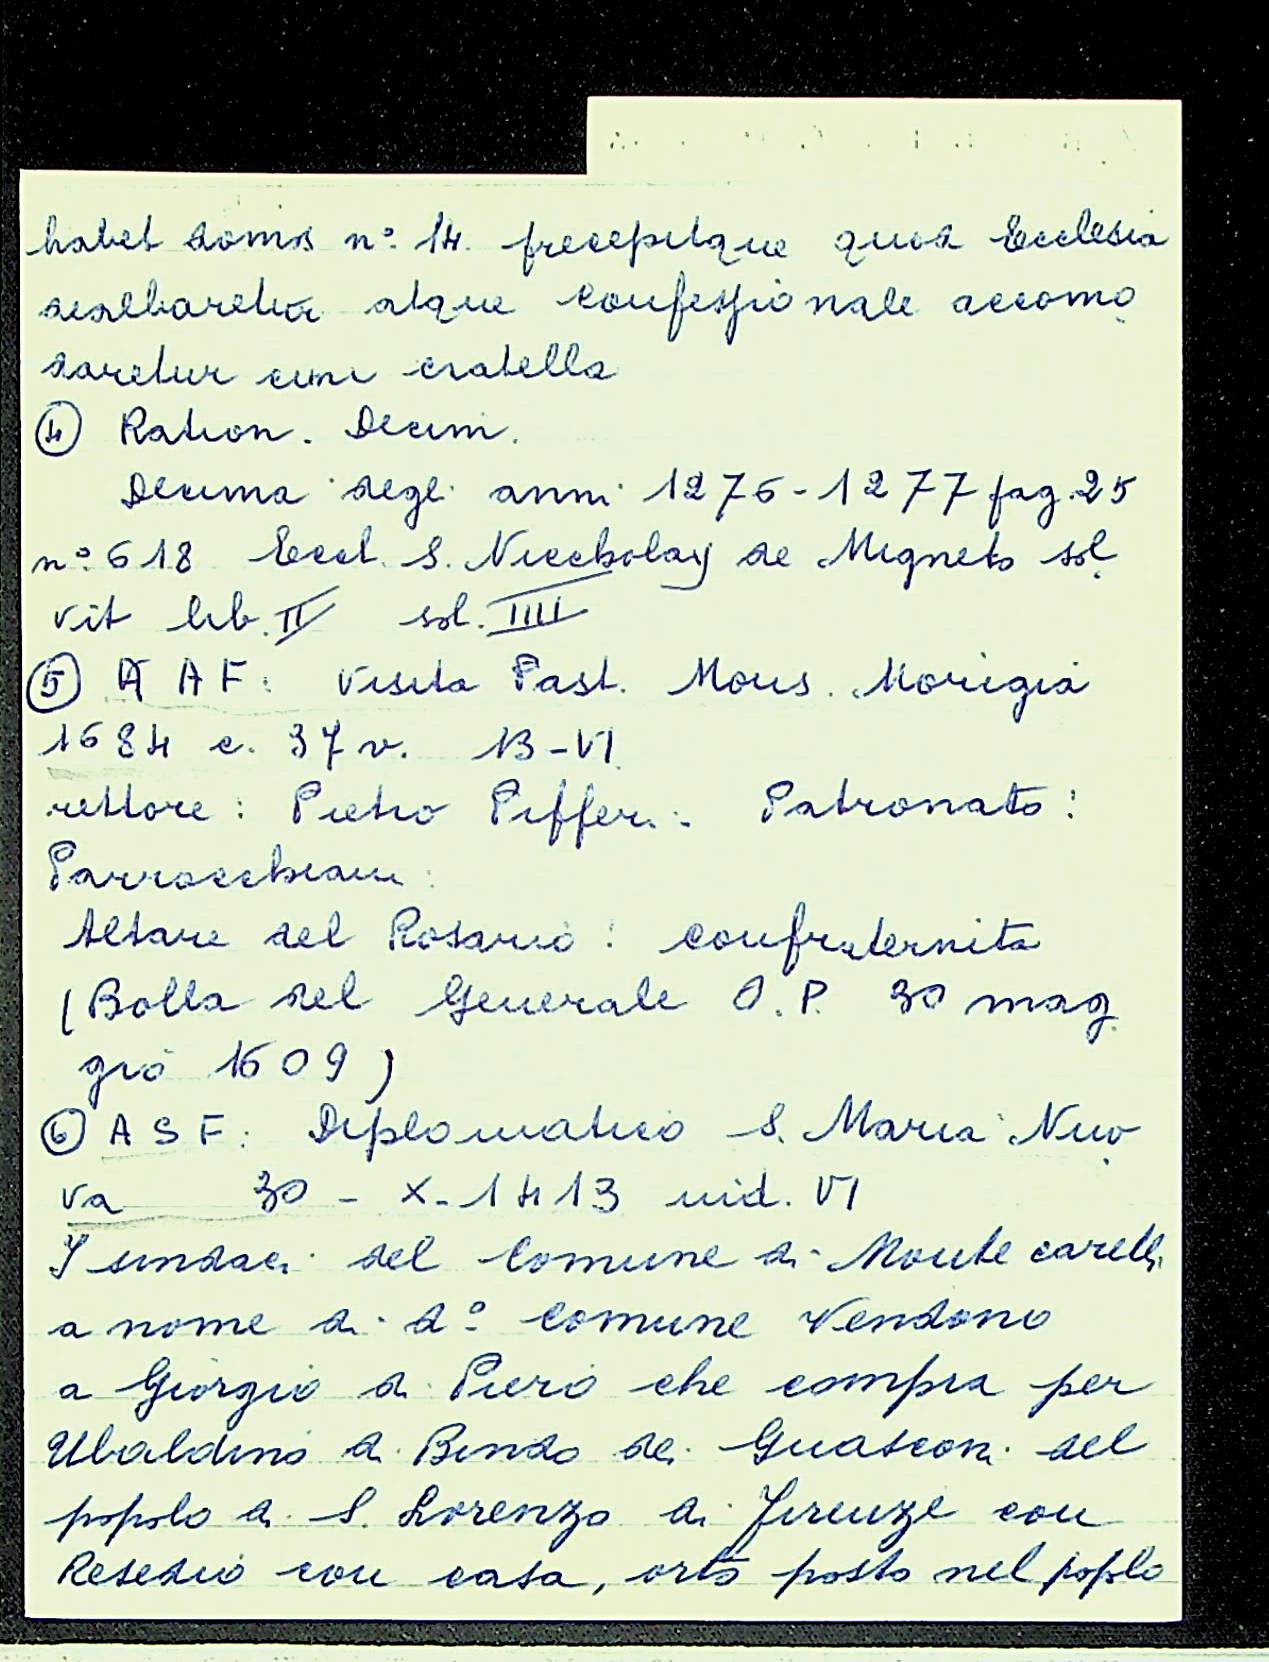 habet domos nº 14. precepitque quod Ecclesia
dealbaretur atque confessionale accomo
daretur cum cratella
④ Ration. Decim.
Decima degli anni 1276-1277 pag. 25
nº 618 Eccl. S. Niccholay de Migneto sol
vit lib. II sol. IIII
⑤ A A F: Visita Past. Mons. Morigia
1684 c. 37 v. 13-VI
rettore: Pietro Pifferi. Patronato:
Parrocchiani
Altare del Rosario: confraternita
(Bolla del Generale O.P. 30 mag
gio 1609)
⑥ A S F: Diplomatico S. Maria Nuo
va 30 - X - 1413 ind. VI
I sindaci del Comune di Monte carelli
a nome di dº Comune vendono
a Giorgio di Piero che compra per
Ubaldino di Bindo dei Guasconi del
popolo di S. Lorenzo di Firenze con
Resedio con casa, orto posto nel poplo